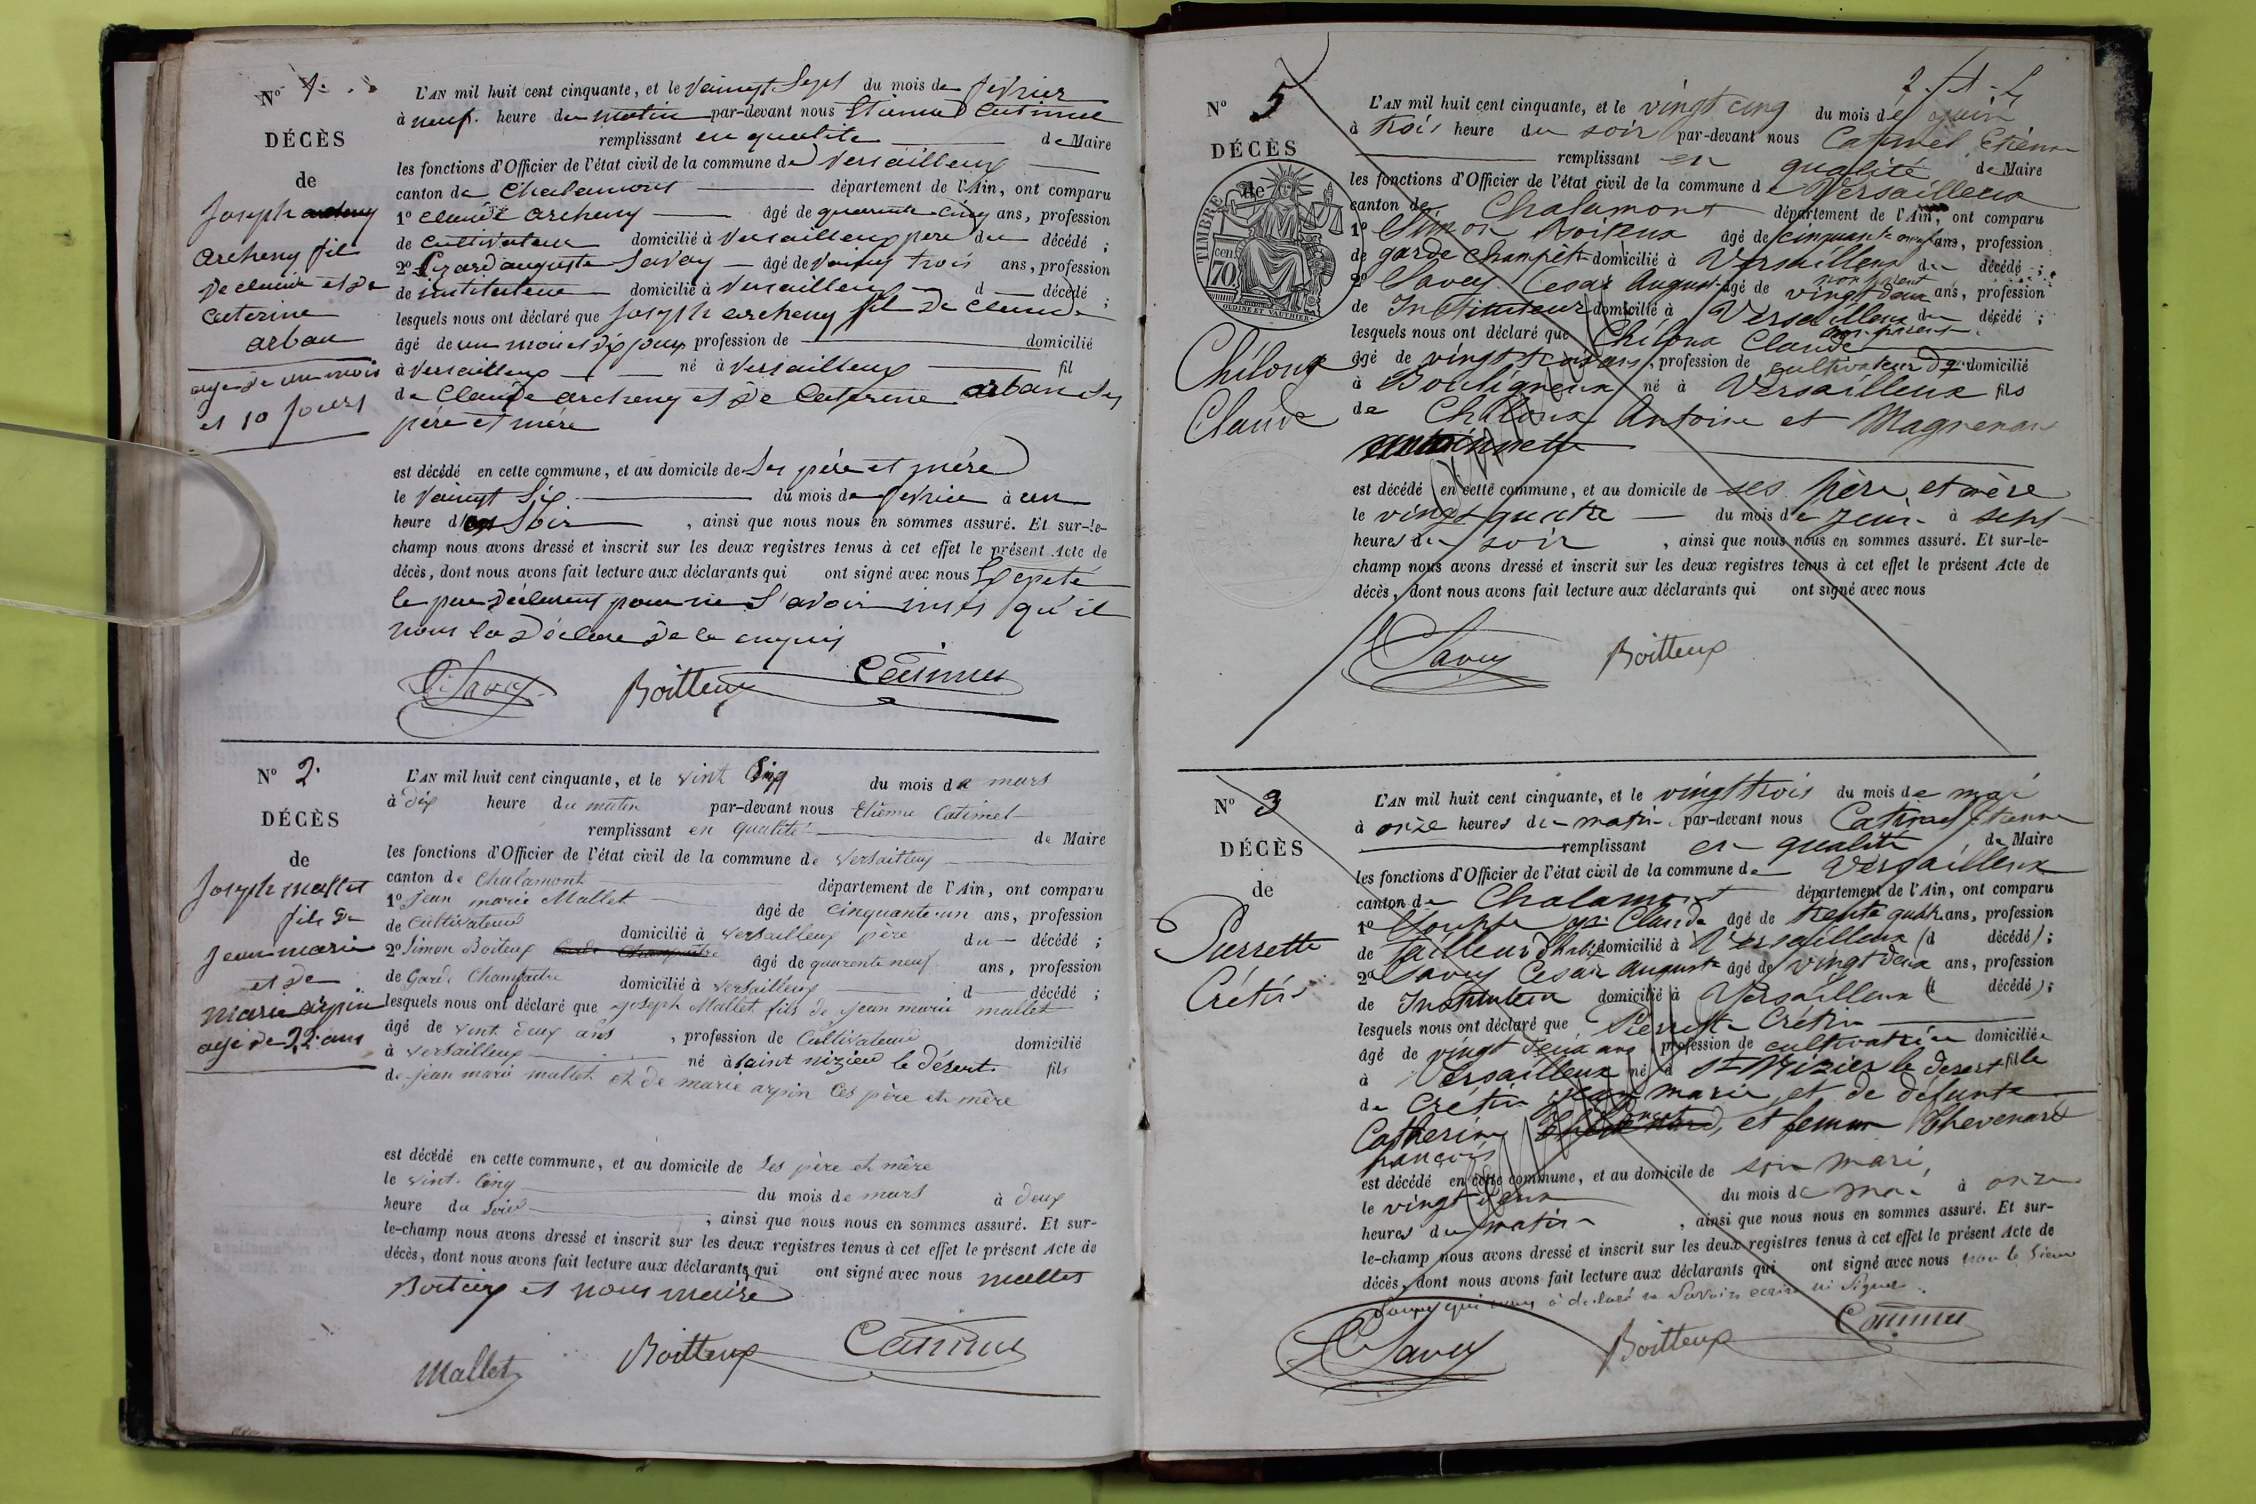 Nº 1.
DÉCÈS
de
Joseph
archeny fil
de claude et de
caterine
arban
age de un mois
et 10 jours
L'AN mil huit cent cinquante, et le vaingt Sept du mois de fevrier
à neuf heure du matin par-devant nous Etienne Catimel
remplissant en qualite de Maire
les fonctions d'Officier de l'état civil de la commune de versailleux
canton de Chalamont département de l'Ain, ont comparu
1º claude archeny âgé de quarante cinq ans, profession
de cultivateur domicilié à versailleux pere du décédé ;
2º auguste Savey âgé de vaingt trois ans, profession
de instituteur domicilié à versailleux d décédé ;
lesquels nous ont déclaré que Joseph archeny fil de claude
âgé de un mois et dix jours profession de domicilié
à versailleux né à versailleux fil
de Claude archeny et de Caterine arban Ses
père et mère
est décédé en cette commune, et au domicile de Ses père et mère
le vaingt Six du mois de fevrier à un
heure du Soir , ainsi que nous nous en sommes assuré. Et sur-le-
champ nous avons dressé et inscrit sur les deux registres tenus à cet effet le présent Acte de
décès, dont nous avons fait lecture aux déclarants qui ont signé avec nous
le pere declarent pour ne S'avoir qu'il
nous la Déclare de la
Savey Boitteux Catimel
Nº 2.
DÉCÈS
de
Joseph mallet
fils de
Jean marie
et de
marie arpin
age de 22 ans
L'AN mil huit cent cinquante, et le vint Sinq du mois de mars
à dix heure du matin par-devant nous Etienne Catimel
remplissant en qualité de Maire
les fonctions d'Officier de l'état civil de la commune de versailleux
canton de Chalamont département de l'Ain, ont comparu
1º Jean marie Mallet âgé de cinquante-un ans, profession
de Cultivateur domicilié à versailleux père du décédé ;
2º Simon Boiteux Garde Champetre âgé de quarente neuf ans, profession
de Garde Champetre domicilié à versailleux d décédé ;
lesquels nous ont déclaré que joseph Mallet fils de jean marie mallet
âgé de vint deux ans , profession de Cultivateur domicilié
à versailleux né à saint nizier le désert fils
de jean marie mallet et de marie arpin Ces père et mère
est décédé en cette commune, et au domicile de Ses père et mère
le vint-Cinq du mois de mars à deux
heure du Soir ; ainsi que nous nous en sommes assuré. Et sur-
le-champ nous avons dressé et inscrit sur les deux registres tenus à cet effet le présent Acte de
décès, dont nous avons fait lecture aux déclarants qui ont signé avec nous mallet
Boiteux et nous maire
Mallet Boitteux Catimel
Nº 5
DÉCÈS
de
TIMBRE
70 cen
OUDINE ET VAUTHIER
Chiloux
Claude
L'AN mil huit cent cinquante, et le vingt cinq du mois de juin
à trois heure du soir par-devant nous Catimel Etienne
remplissant en qualité de Maire
les fonctions d'Officier de l'état civil de la commune de Versailleux
canton de Chalamont département de l'Ain, ont comparu
1º Simon Boiteux âgé de cinquante ans, profession
de garde champêtre domicilié à Versailleux du décédé ;
non parent
2º Savey Cesar August âgé de vingt deux ans, profession
de Instituteur domicilié à Versailleux du décédé ;
non parent
lesquels nous ont déclaré que Chiloux Claude
âgé de vingt trois ans, profession de cultivateur domicilié
à Bouligneux né à Versailleux fils
de Chiloux Antoine et Magnenan
antoinnette
est décédé en cette commune, et au domicile de ses père et mère
le vingt quatre du mois de juin à sept
heures du soir , ainsi que nous nous en sommes assuré. Et sur-le-
champ nous avons dressé et inscrit sur les deux registres tenus à cet effet le présent Acte de
décès, dont nous avons fait lecture aux déclarants qui ont signé avec nous
Savey Boitteux
Nº 3
DÉCÈS
de
Pierrette
Crétin
L'AN mil huit cent cinquante, et le vingt trois du mois de mai
à onze heures du matin par-devant nous Catimel Etienne
remplissant en qualité de Maire
les fonctions d'Officier de l'état civil de la commune de Versailleux
canton de Chalamont département de l'Ain, ont comparu
1º Claude âgé de trente quatre ans, profession
de tailleur d'habit domicilié à Versailleux (d décédé) ;
2º Savey Cesar Auguste âgé de vingt deux ans, profession
de Instituteur domicilié à Versailleux (d décédé) ;
lesquels nous ont déclaré que Pierrette Crétin
âgé de vingt deux ans , profession de cultivatrice domiciliée
à Versailleux né à St Nizier le desert fille
de Crétin jean marie et de défunte
Catherine et femme Chevenard
françois
est décédé en cette commune, et au domicile de son mari,
le vingt deux du mois de mai à onze
heures du matin , ainsi que nous nous en sommes assuré. Et sur-
le-champ nous avons dressé et inscrit sur les deux registres tenus à cet effet le présent Acte de
décès, dont nous avons fait lecture aux déclarants qui ont signé avec nous non le Sieur
qui nous à déclaré ne Savoir ecrire ni Signer.
Savey Boitteux Catimel